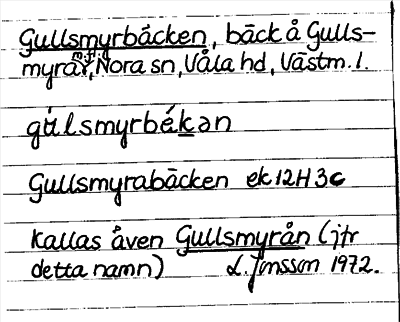 Gullsmyrbäcken, bäck å Gulls-
myrar, Nora sn, Våla hd, Västm. l.
gúlsmyrbékən
Gullsmyrabäcken ek 12H 3c
Kallas även Gullsmyrån (jfr
detta namn) L. Jonsson 1972.